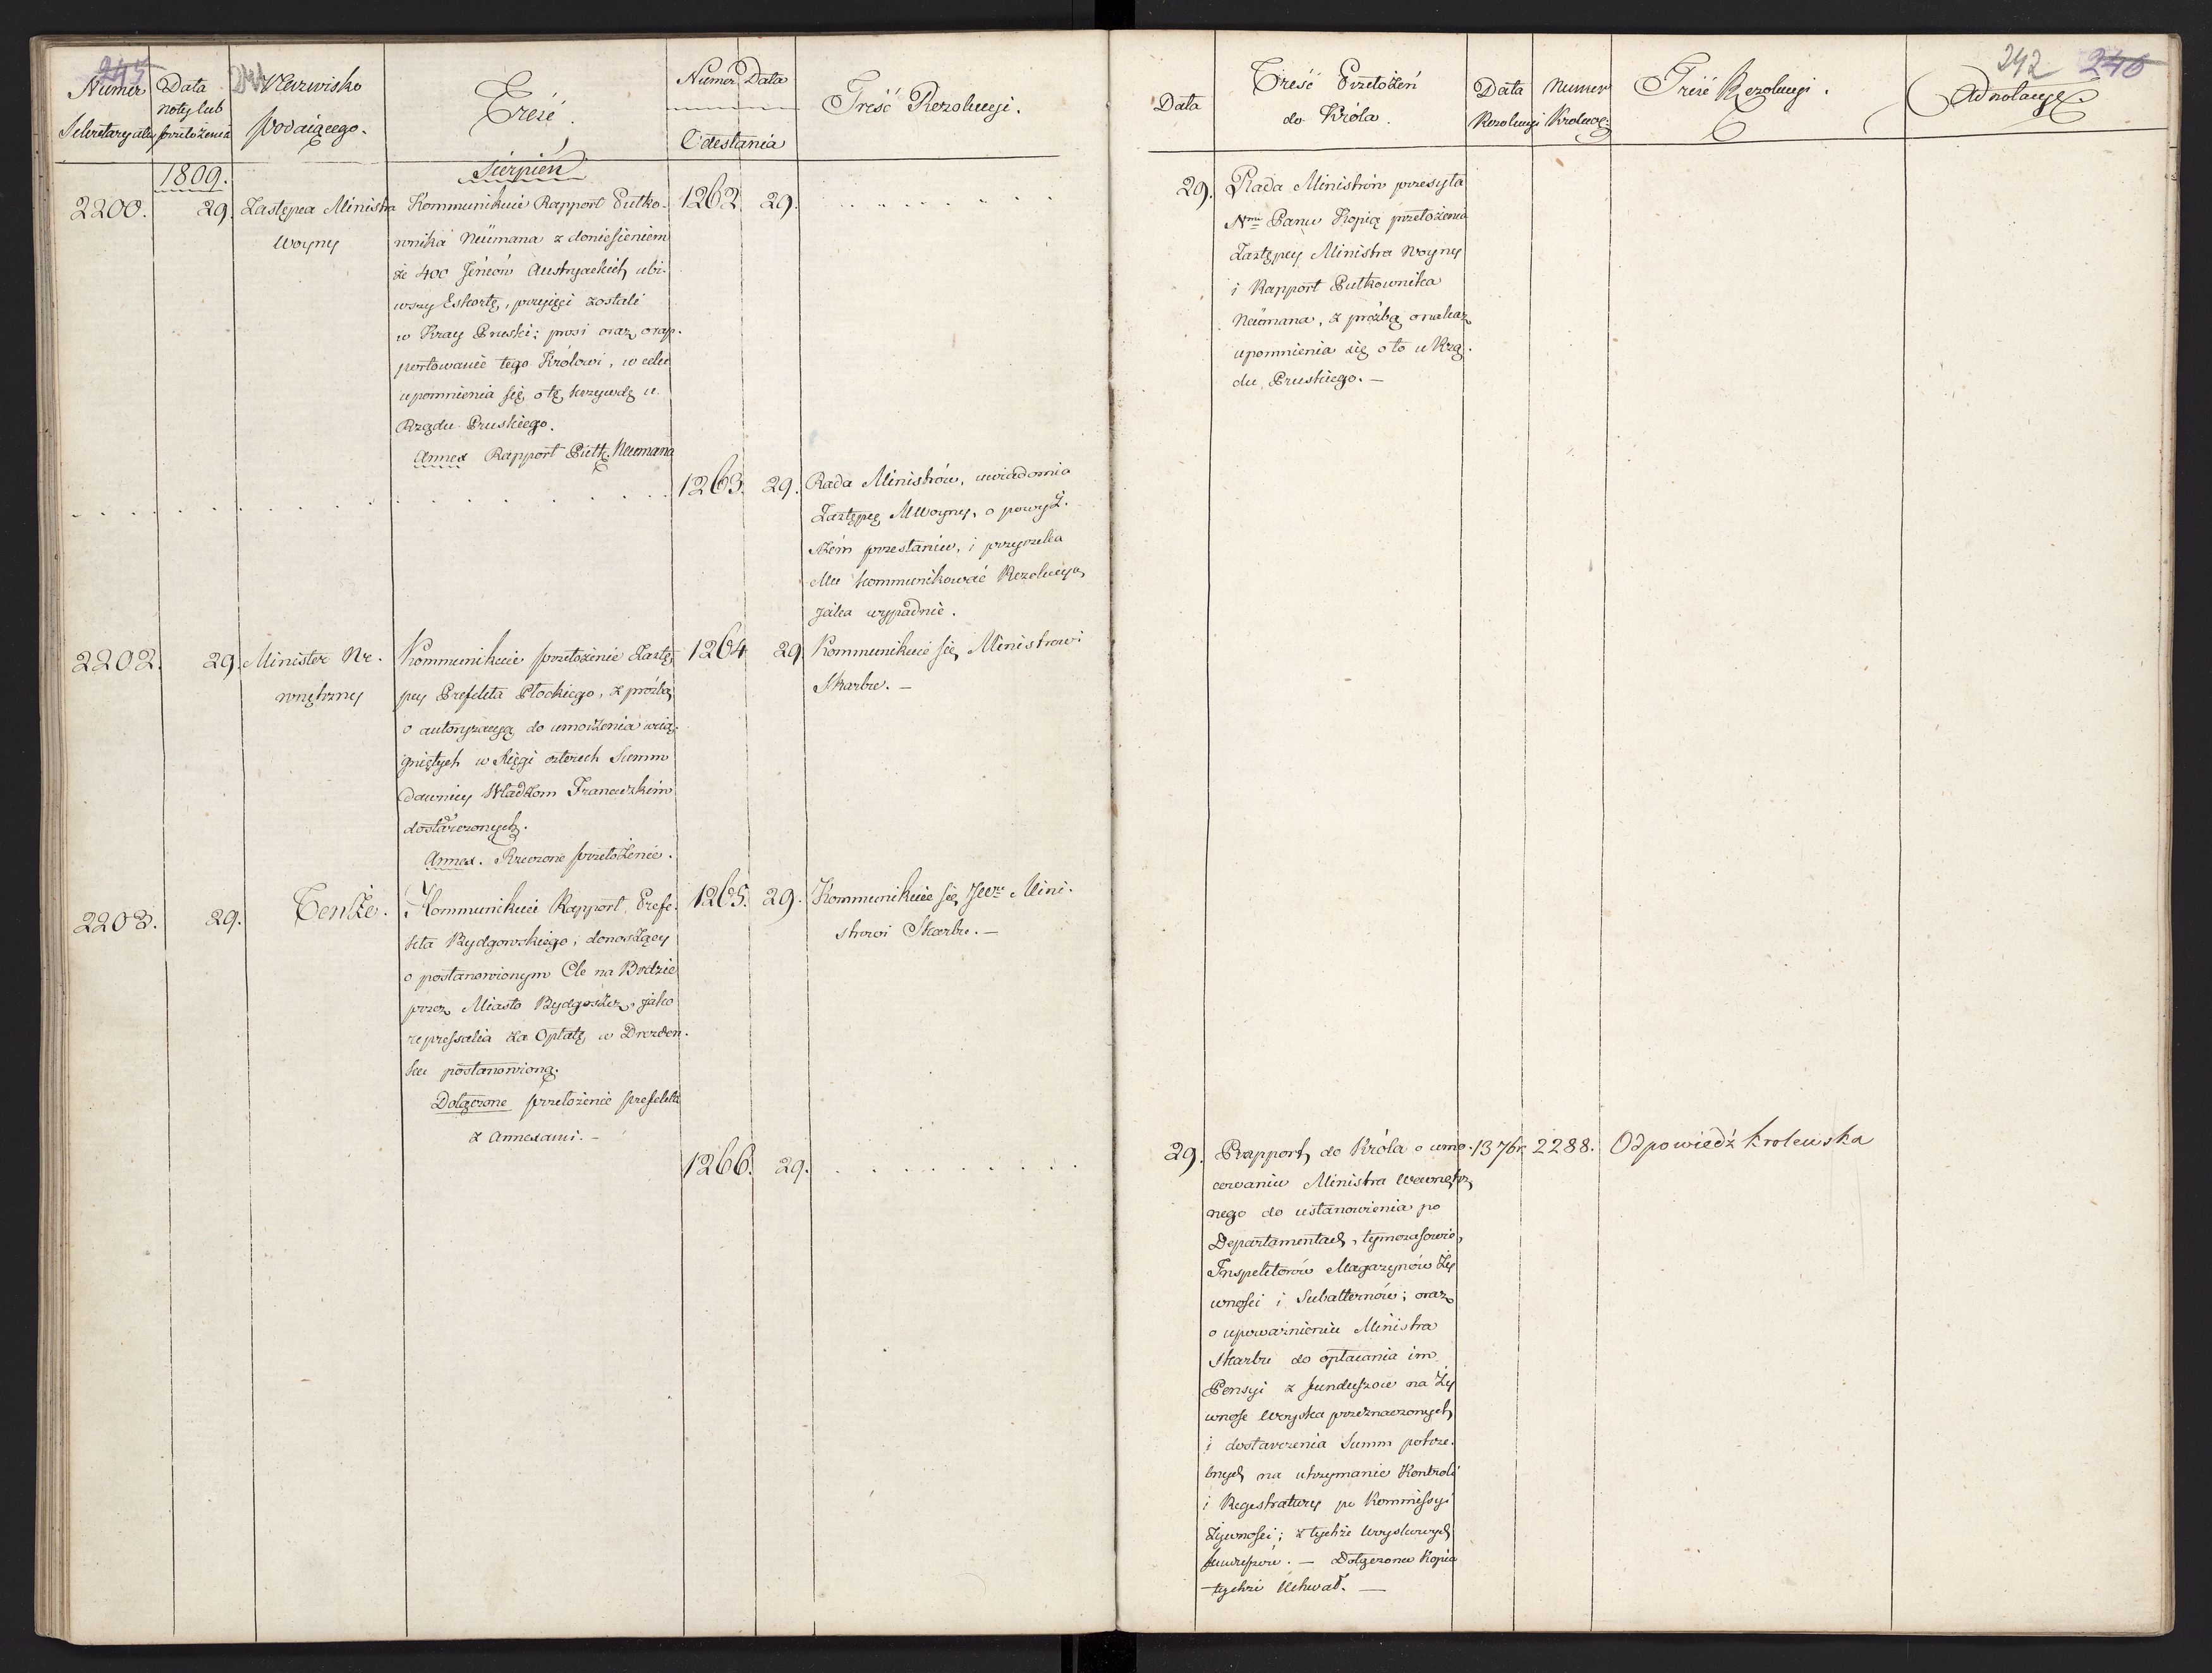 245
241
Numer
Sekretaryatu
Data
noty lub
przełożenia
Nazwisko
Podaiącego.
Treść.
Numer Data
Odesłania
Treść Rezolucyi.
1809.
Sierpień
2200. 29. Zastępca Ministra
Woyny
Kommunikuie Rapport Pułko-
wnika Neümana z doniesieniem
że 400 Jeńców Austryackich ubi-
wszy Eskortę, przyięci zostali
w Kray Pruski; prosi oraz o rap-
portowanie tego Królowi, w celu
upomnienia się o tę krzywdę u
Rządu Pruskiego.
Annex Rapport Pułk. Neumana
1262. 29.
1263. 29. Rada Ministrów, uwiadomia
Zastępcę M Woyny, o powyż-
szém przesłaniu, i przyrzeka
Mu kommunikować Rezolucyą,
jaka wypadnie.
2202. 29. Minister We-
wnętrzny
Kommunikuie przełożenie Zastę-
pcy Prefekta Płockiego, z prośbą
o autoryzacyą do umorzenia wcią-
gniętych w Xięgi czterech Summ
dawniey Władzom Francuzkim
dostarczonych.
Annex. Rzeczone przełożenie.
1264 29. Kommunikuie się Ministrowi
Skarbu. —
2203. 29. Tenże.
Kommunikuie Rapport Prefe-
kta Bydgowskiego, donoszący
o postanowionym Cle na Brdzie
przez Miasto Bydgoszcz, jako
repressalia za Opłatę w Drezden-
ku postanowioną.
Dołączone przełożenie prefekta
z Annexami. —
1265. 29. Kommunikuie się JWu Mini-
strowi Skarbu. —
1266. 29.
242 246
Data
Treść Przełożeń
do Króla.
Data
Rezolucyi
Numer
Królews:
Treść Rezolucyi.
Adnotacye
29. Rada Ministrów przesyła
Nmu Panu Kopią przełożenia
Zastępcy Ministra Woyny
i Rapport Pułkownika
Neümana, z prośbą o nakaz
upomnienia się o to u Rzą-
du Pruskiego. —
29. Rapport do Króla o umo-
cowaniu Ministra Wewnętrz-
nego do ustanowienia po
Departamentach, tymczasowie,
Inspektorów Magazynów Ży-
wności i Subalternów; oraz
o upoważnieniu Ministra
Skarbu do opłacania im
Pensyi z funduszow na Ży-
wność Woyska przeznaczonych
i dostarczenia Summ potrze-
bnych na utrzymanie Kontroli
i Regestratury po Kommissyi
Żywności; z tychże Woyskowych
funduszow. — Dołączona Kopia
tychże Uchwał. —
1376r. 2288. Odpowiedź krolewska